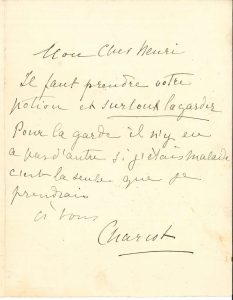 Mon cher Henri
Il faut prendre votre
potion et surtout la garder
Pour la garde il n'y en
a pas d'autre si j'étais malade
c'est la seule que je
prendrais
à vous
Charcot